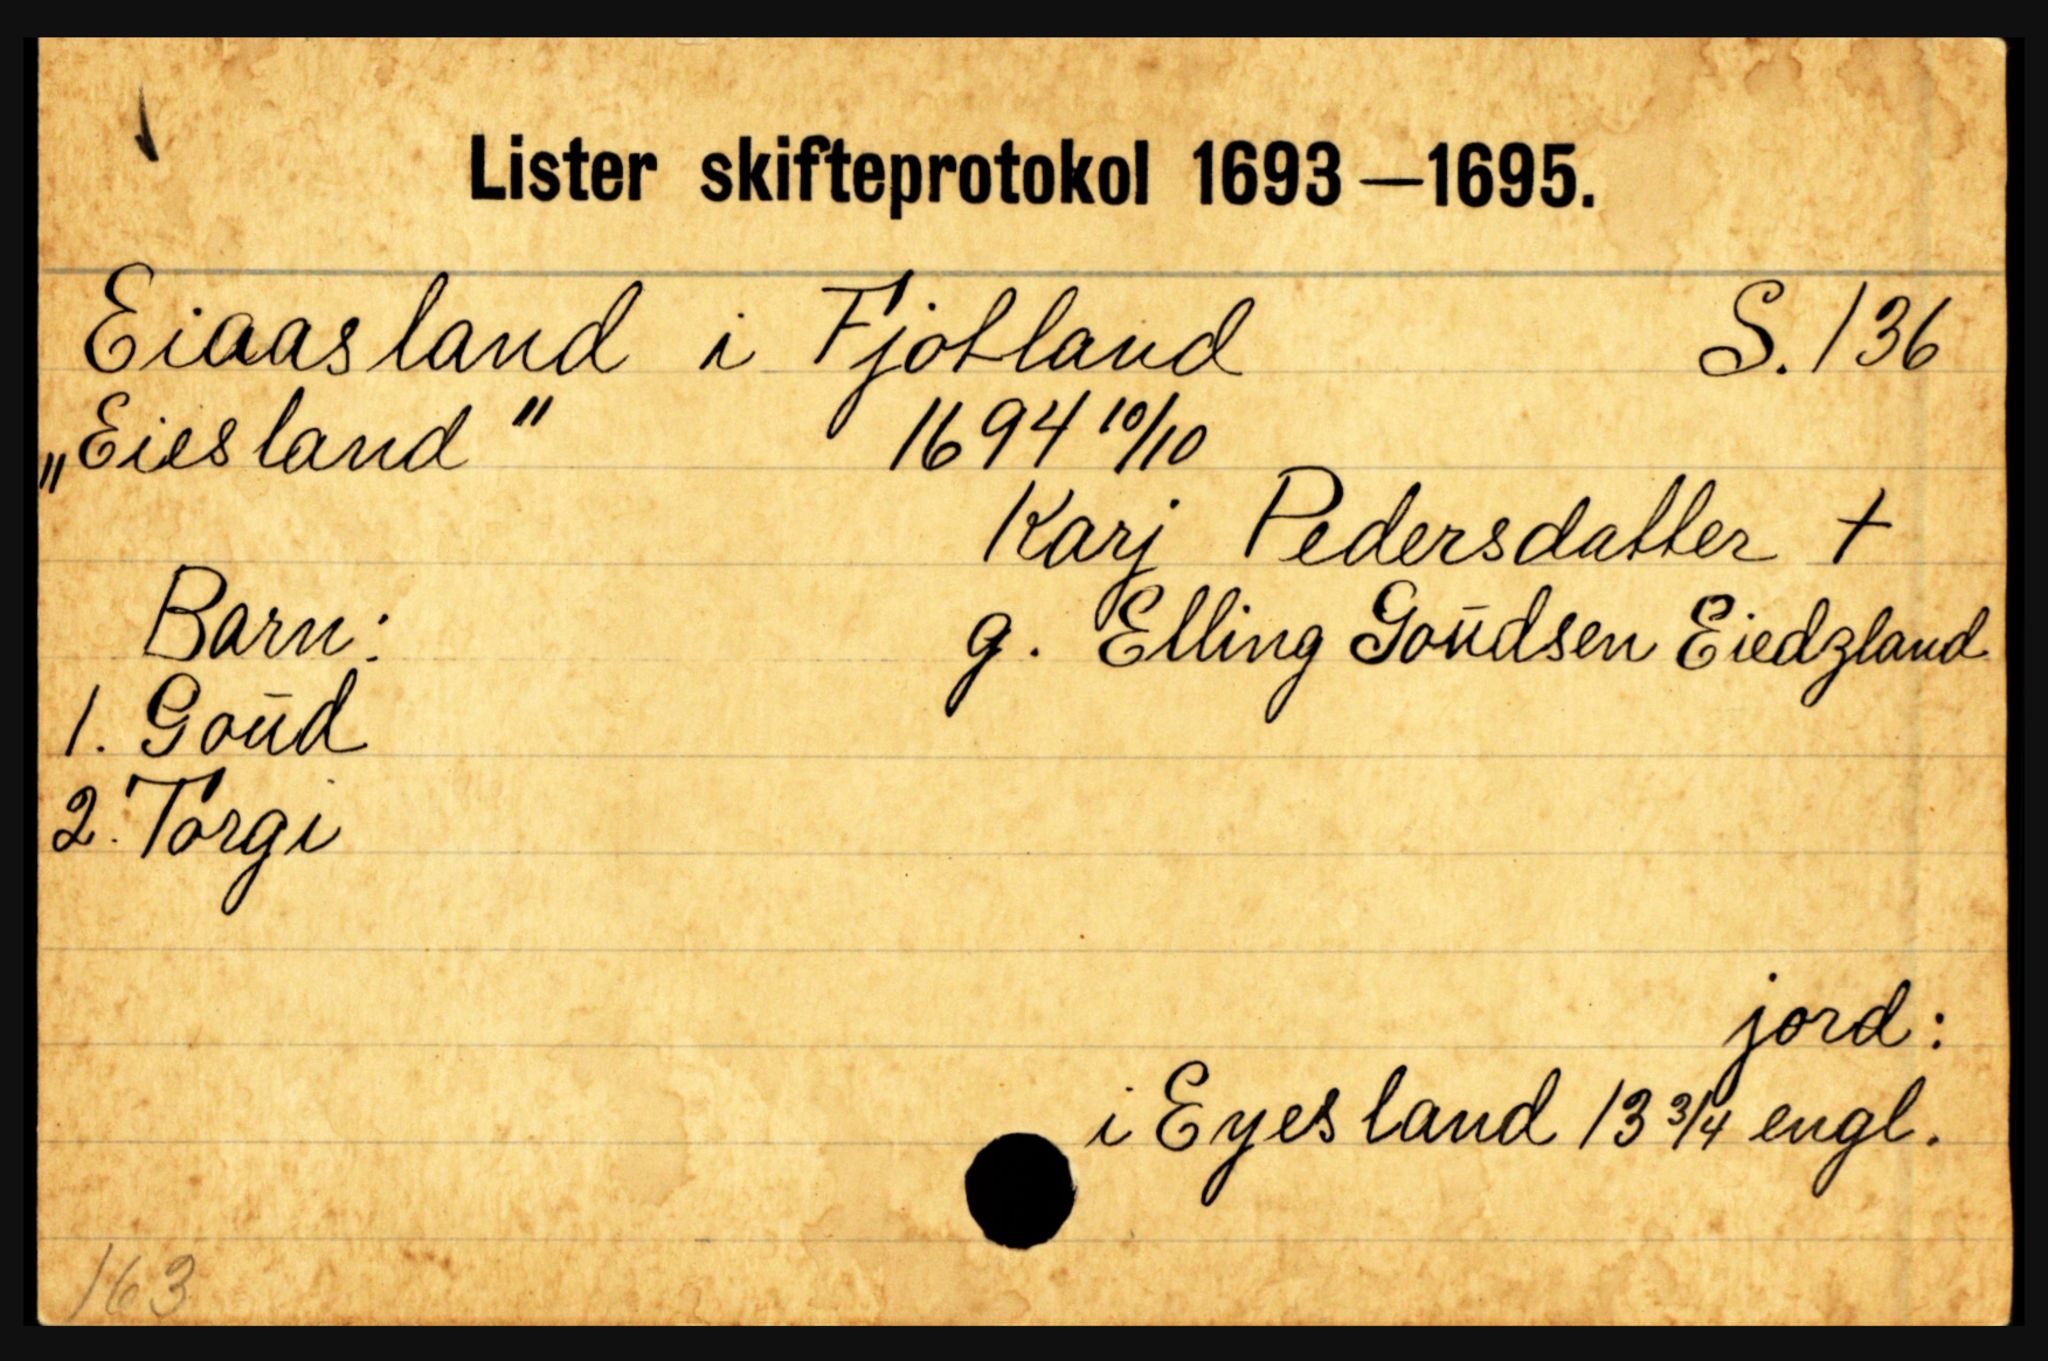 Lister skifteprotokol 1693—1695.
Eiaasland i Fjotland S. 136
„Eiesland" 1694 10/10
Karj Pedersdatter +
Barn: g. Elling Goŭdsen Eiedzland
1. Goŭd
2. Torgi
jord:
i Eyesland 13 3/4 engl.
163